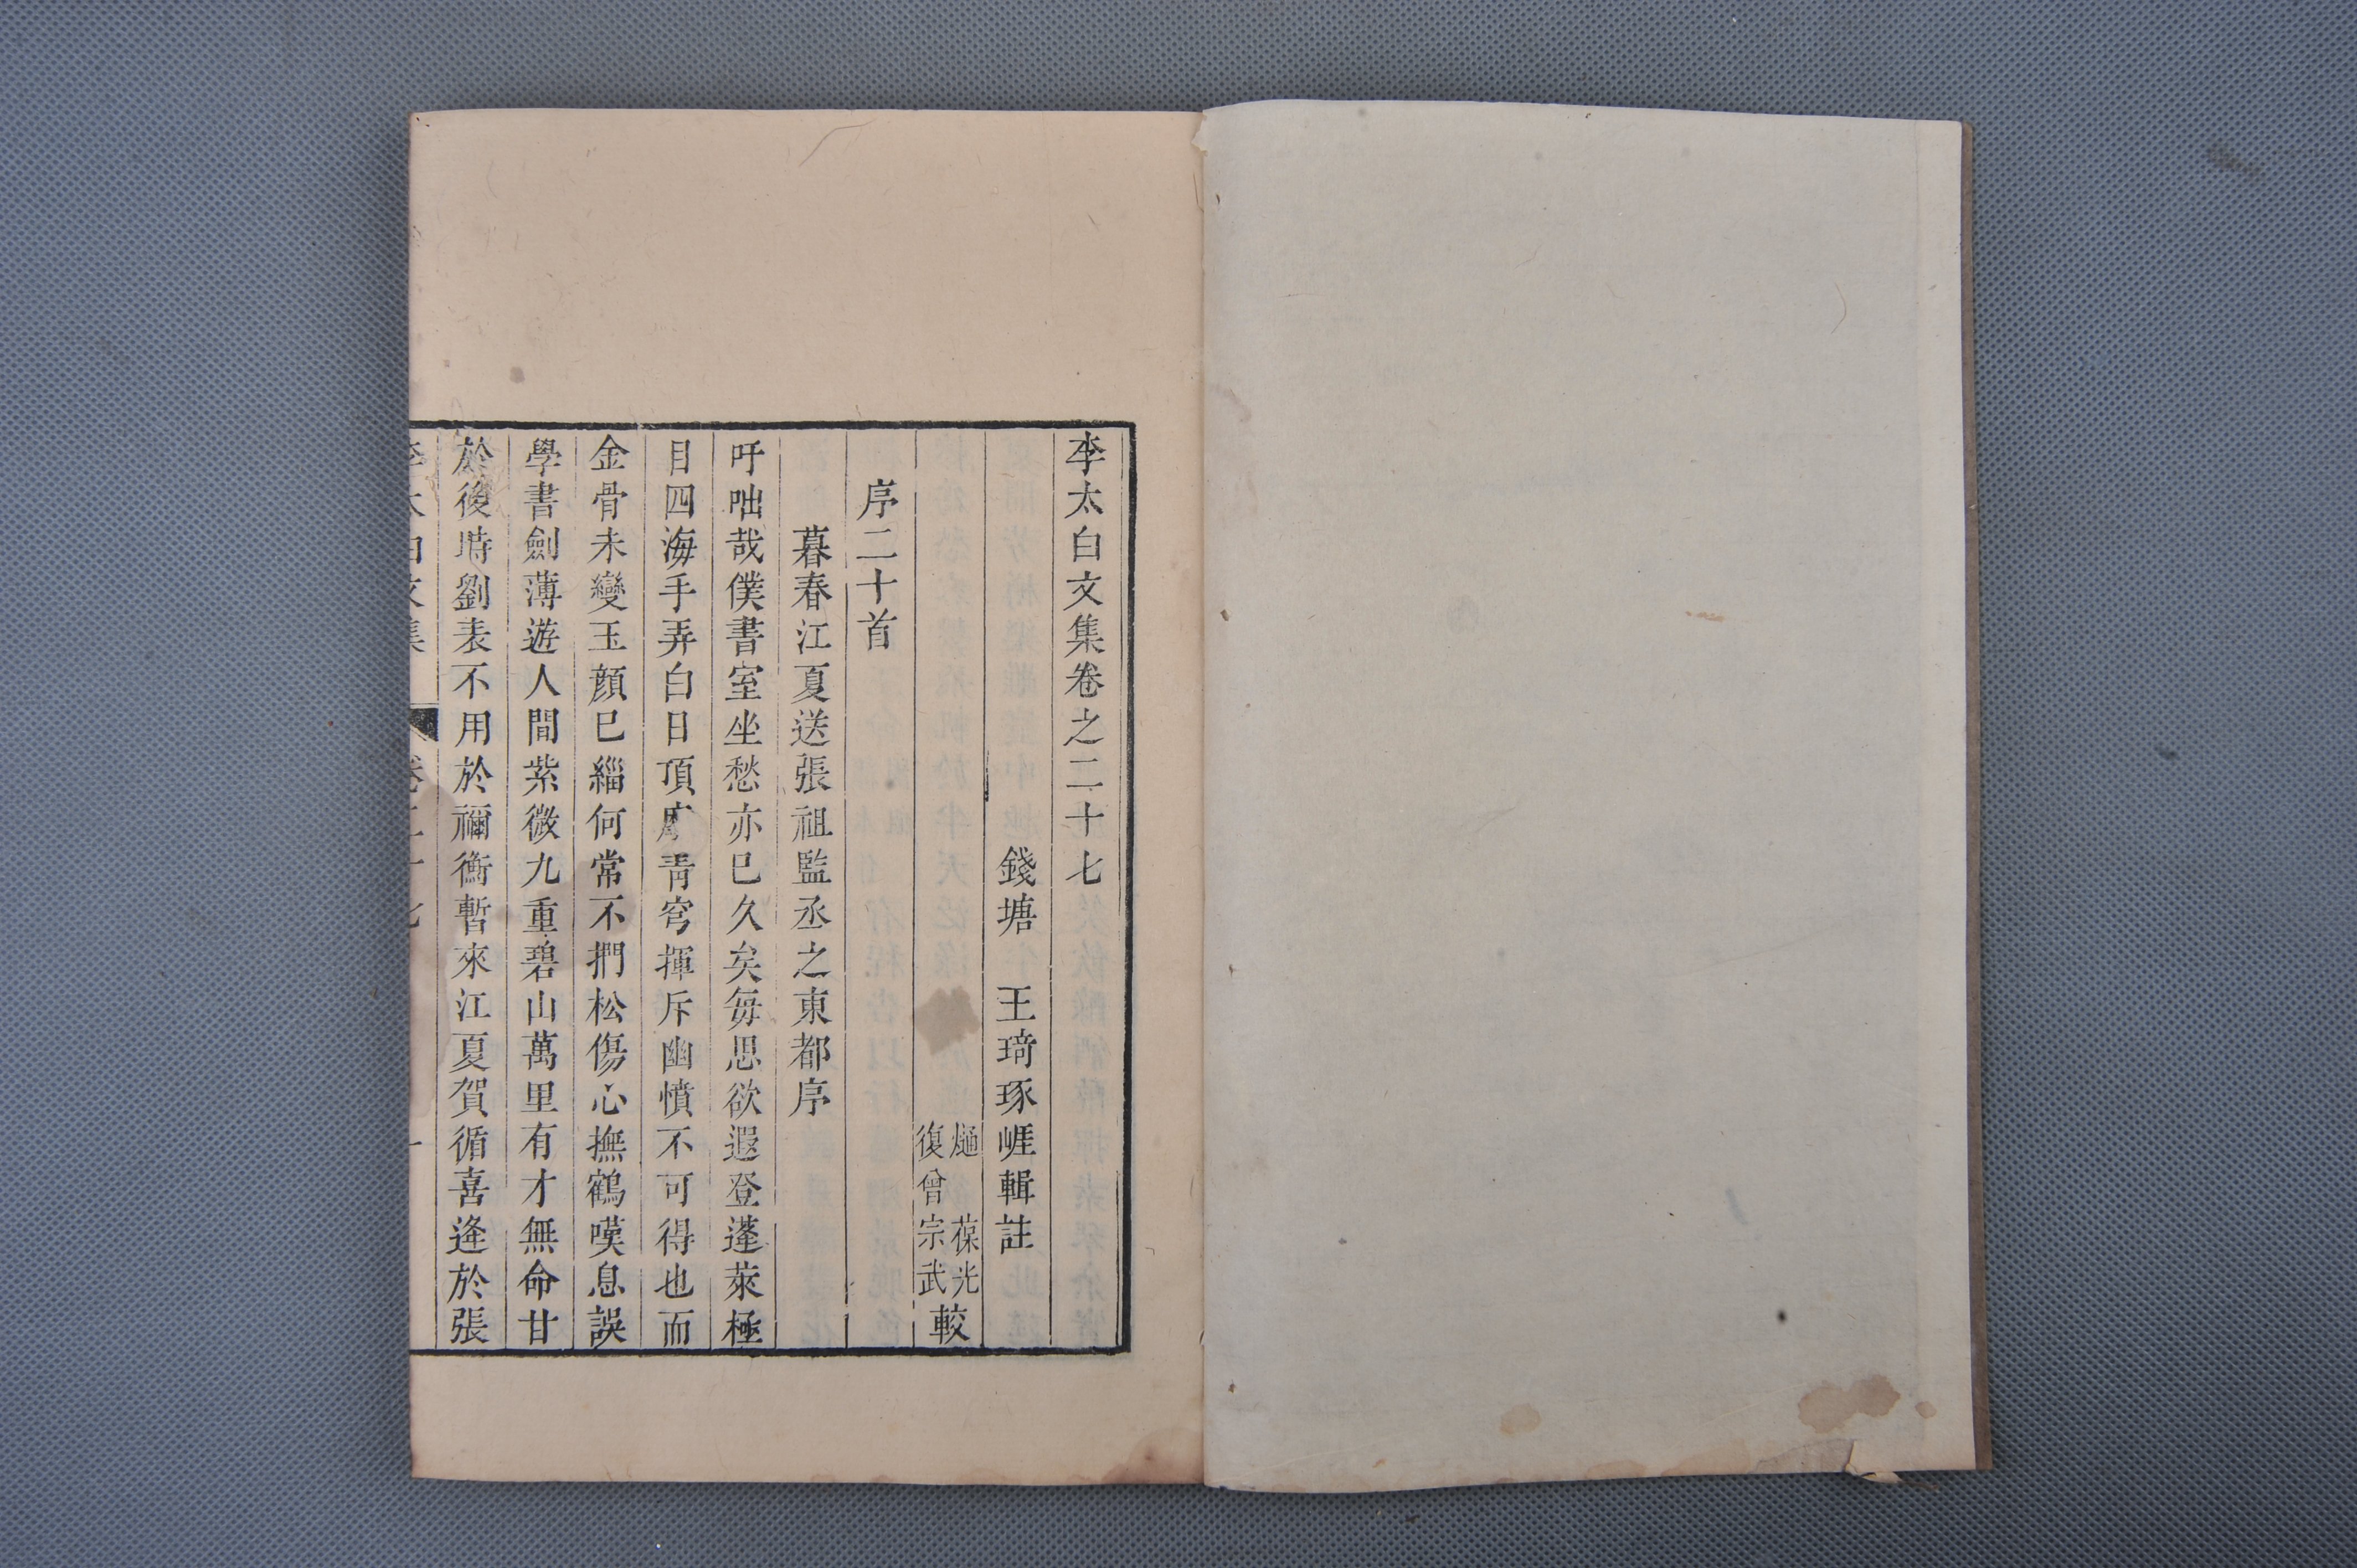 李太白文集卷之二十七
錢塘 王琦琢崕輯註
熥 葆光
復曾宗武
較
序二十首
暮春江夏送張祖監丞之東都序
吁咄哉僕書室坐愁亦巳久矣每思欲遐登蓬萊極
目四海手弄白日頂摩青穹揮斥幽憤不可得也而
金骨未變玉顔巳緇何常不捫松傷心撫鶴嘆息誤
學書劍薄遊人間紫微九重碧山萬里有才無命甘
於後時劉表不用於禰衡暫來江夏賀循喜逢於張
李太白文集 卷二十七 一